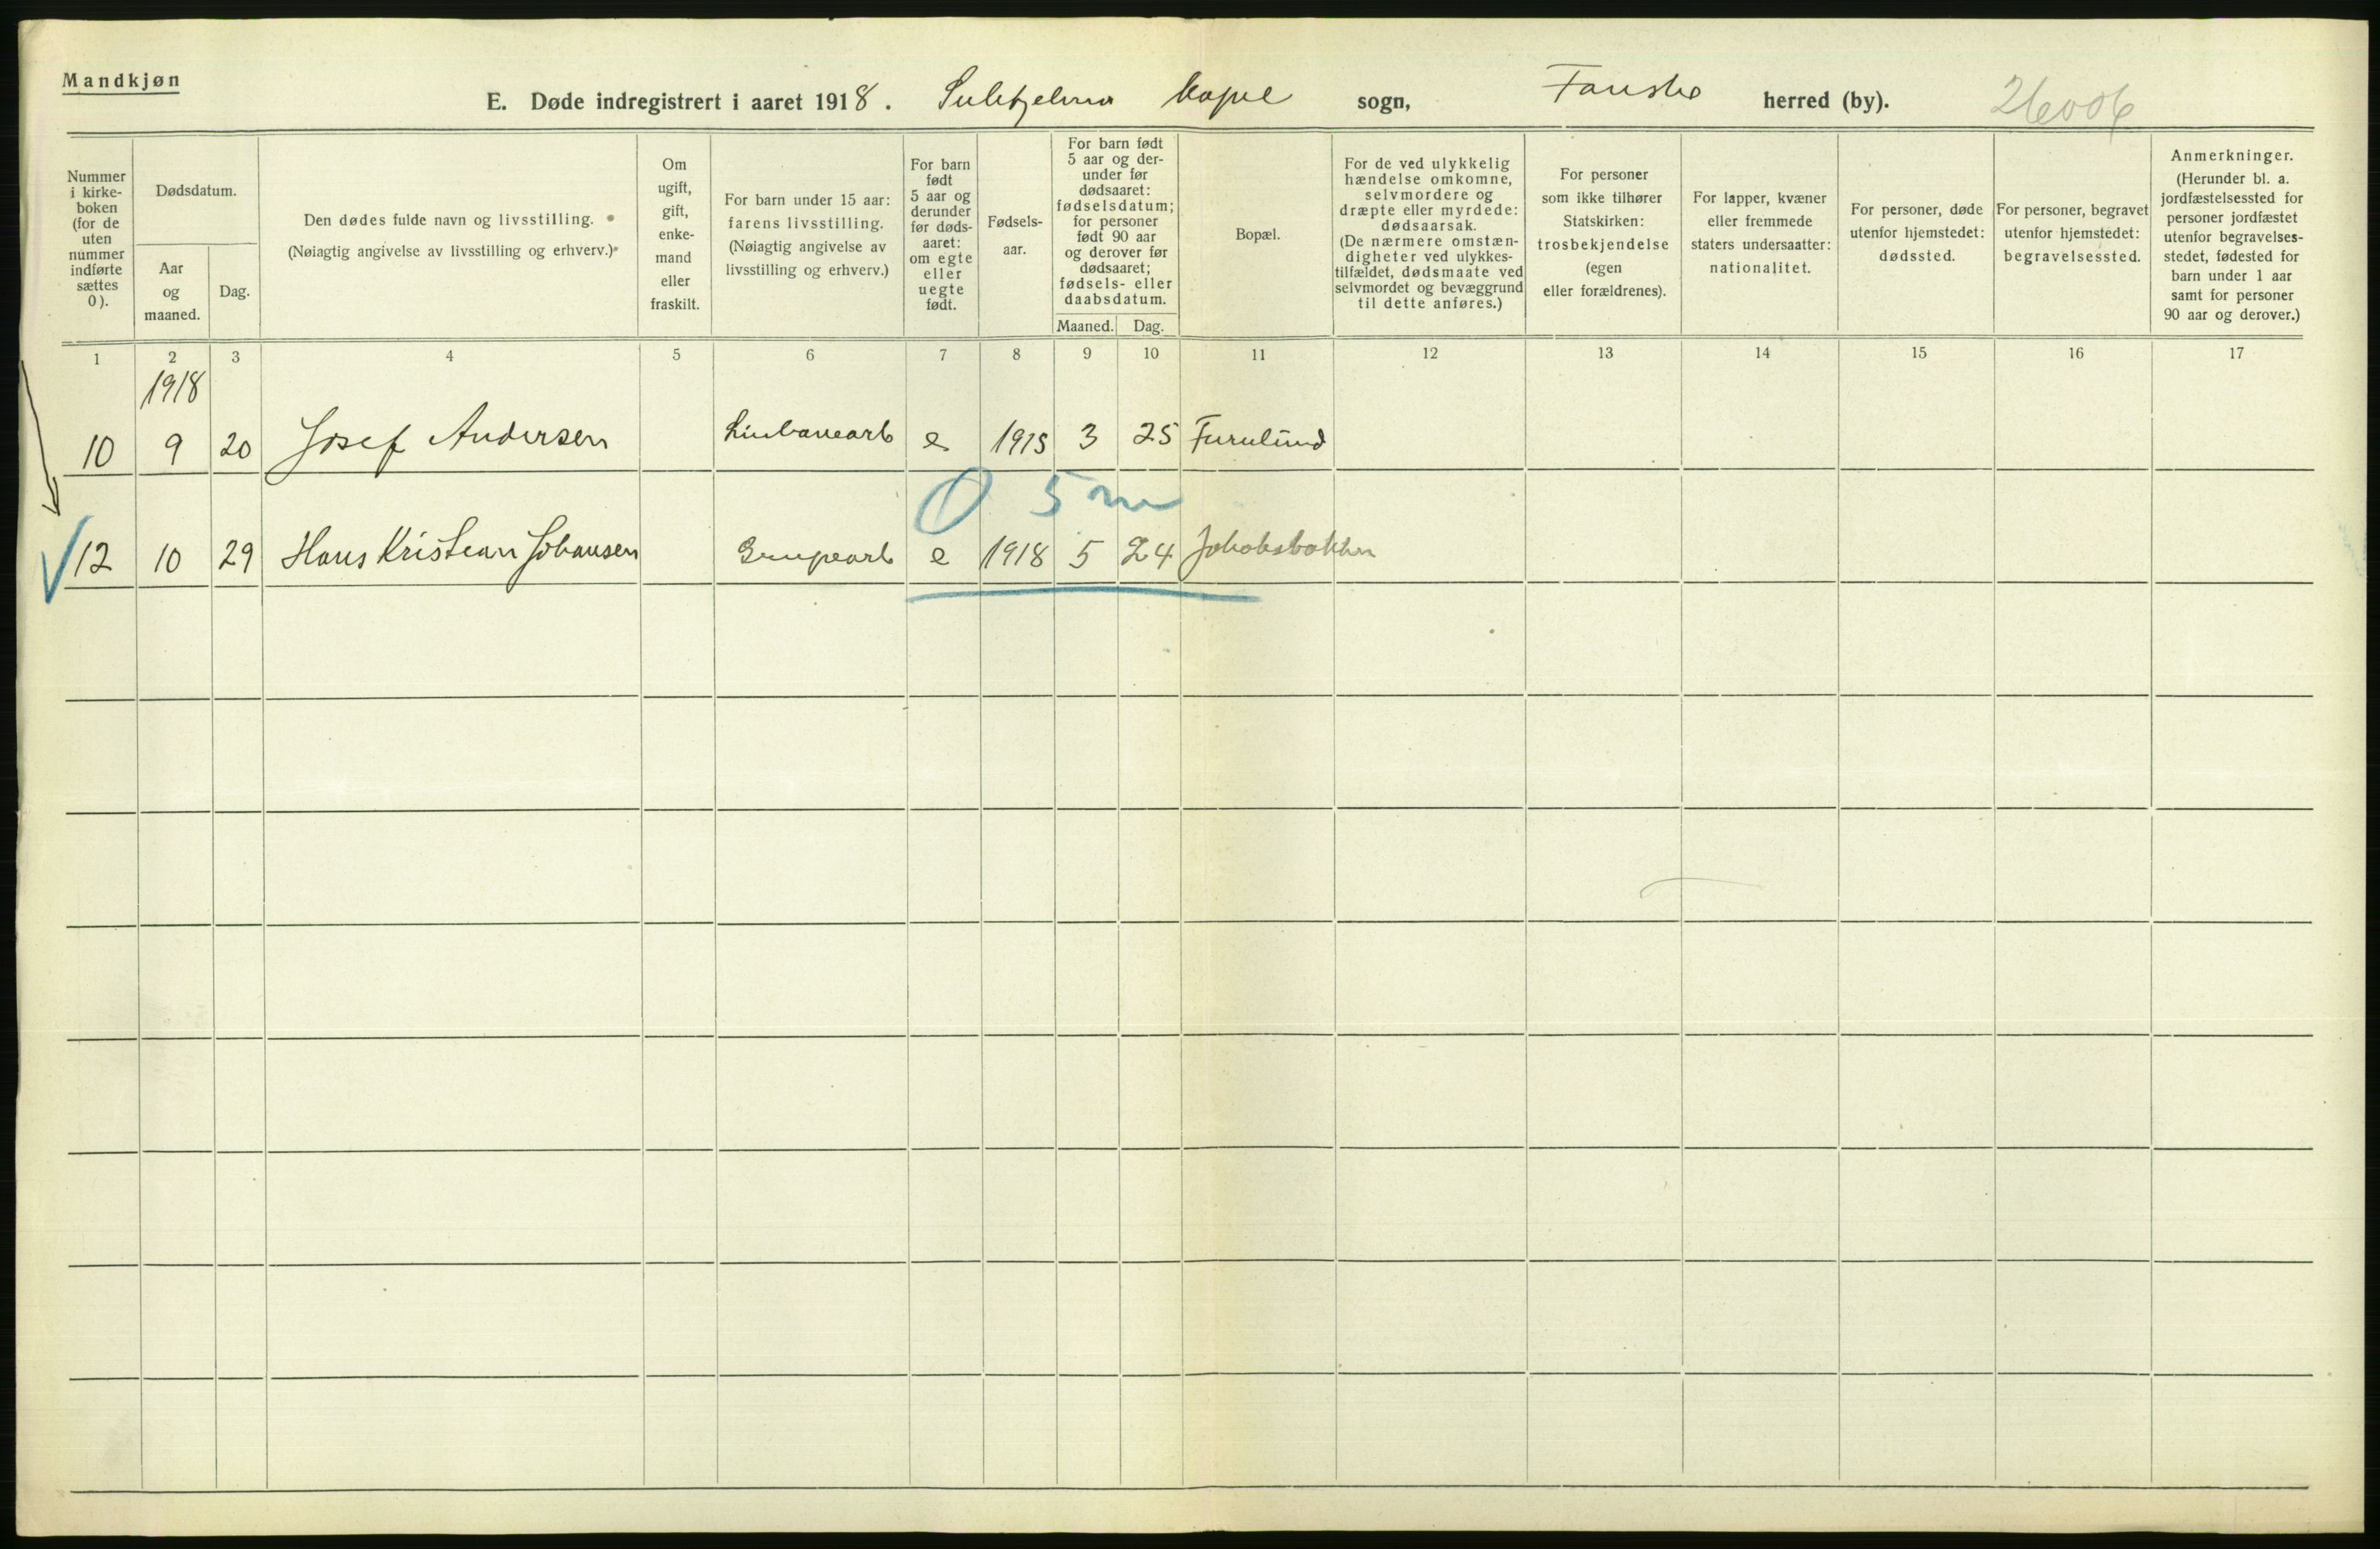 Mandkjøn
E. Døde indregistrert i aaret 1918. Sulitjelma kapel sogn, Fauske herred (by). 26006
Nummer i kirke- boken (for de uten nummer indførte sættes 0).
Dødsdatum.
Aar og maaned.
Dag.
Den dødes fulde navn og livsstilling.
(Nøiagtig angivelse av livsstilling og erhverv.)
Om ugift, gift, enke- mand eller fraskilt.
For barn under 15 aar: farens livsstilling. (Nøiagtig angivelse av livsstilling og erhverv.)
For barn født 5 aar og derunder før døds- aaret: om egte eller uegte født.
Fødsels- aar.
For barn født 5 aar og der- under før dødsaaret: fødselsdatum; for personer født 90 aar og derover før dødsaaret; fødsels- eller daabsdatum.
Maaned. Dag.
Bopæl.
For de ved ulykkelig hændelse omkomne, selvmordere og dræpte eller myrdede: dødsaarsak. (De nærmere omstæn- digheter ved ulykkes- tilfældet, dødsmaate ved selvmordet og bevæggrund til dette anføres.)
For personer som ikke tilhører Statskirken: trosbekjendelse (egen eller forældrenes).
For lapper, kvæner eller fremmede staters undersaatter: nationalitet.
For personer, døde utenfor hjemstedet: dødssted.
For personer, begravet utenfor hjemstedet: begravelsessted.
Anmerkninger. (Herunder bl. a. jordfæstelsessted for personer jordfæstet utenfor begravelses- stedet, fødested for barn under 1 aar samt for personer 90 aar og derover.)
1 2 3 4 5 6 7 8 9 10 11 12 13 14 15 16 17
1918
10 9 20 Josef Andersen Linbanearb e 1915 3 25 Furulund
0 5 m
12 10 29 Hans Kristian Johansen Grupearb e 1918 5 24 Jakobsbakken